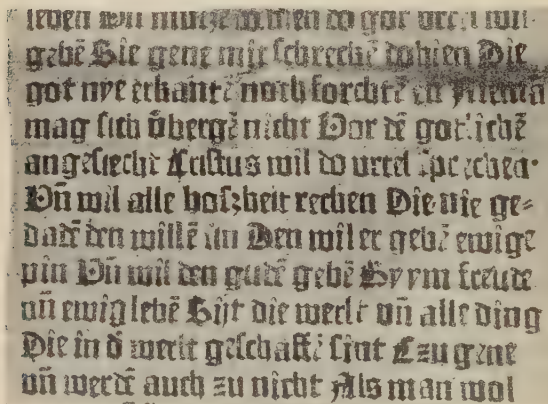 leben got
gebē Sie gene mit schreckē dohien Die
got nye erkantē noch forchtē en Niemā
mag sich v̄bergē nicht Vor dē gotlichē
angesiecht Cristus wil do vrtel sprechen·
Vn̄ wil alle boszheit rechen Die nie ge⸗
datē den willē sin Den wil er gebē ewige
pin Vn̄ wil den gudē gebē By ym freude
vn̄ ewig lebē Sijt die werlt vn̄ alle ding
Die in d̄ werlt geschaffē sint Czu gene
vn̄ werdē auch zu nicht Als man wol